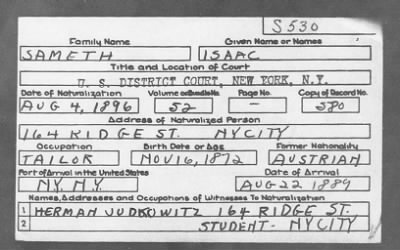 S530
Family Name Given Name or Names
SAMETH ISAAC
Title and Location of Court
U. S. DISTRICT COURT, NEW YORK, N.Y.
Date of Naturalization Volume or Bundle No. Page No. Copy of Record No.
AUG 4, 1896 52 — 580
Address of Naturalized Person
164 RIDGE ST. NYCITY
Occupation Birth Date or Age Former Nationality
TAILOR NOV 16, 1872 AUSTRIAN
Port of Arrival in the United States Date of Arrival
N.Y. N.Y. AUG 22 1889
Names, Addresses and Occupations of Witnesses To Naturalization
1 HERMAN JUDKOWITZ 164 RIDGE ST.
2 STUDENT - NYCITY